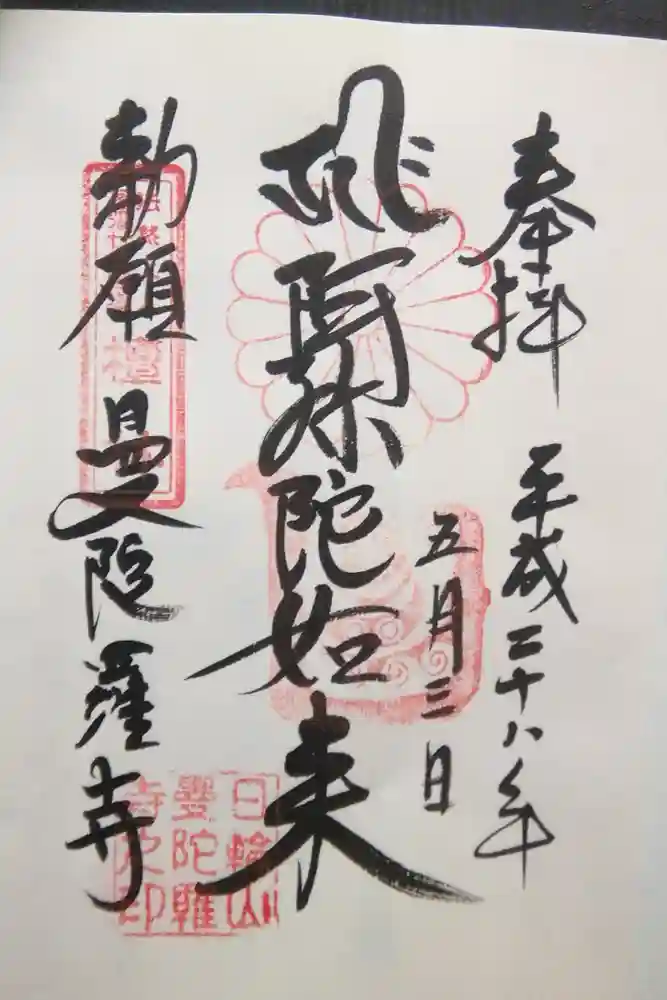 奉拝
平成二十八年
五月三日
阿弥陀如来
勅願 曼陀羅寺
日輪山
曼陀羅
寺之印